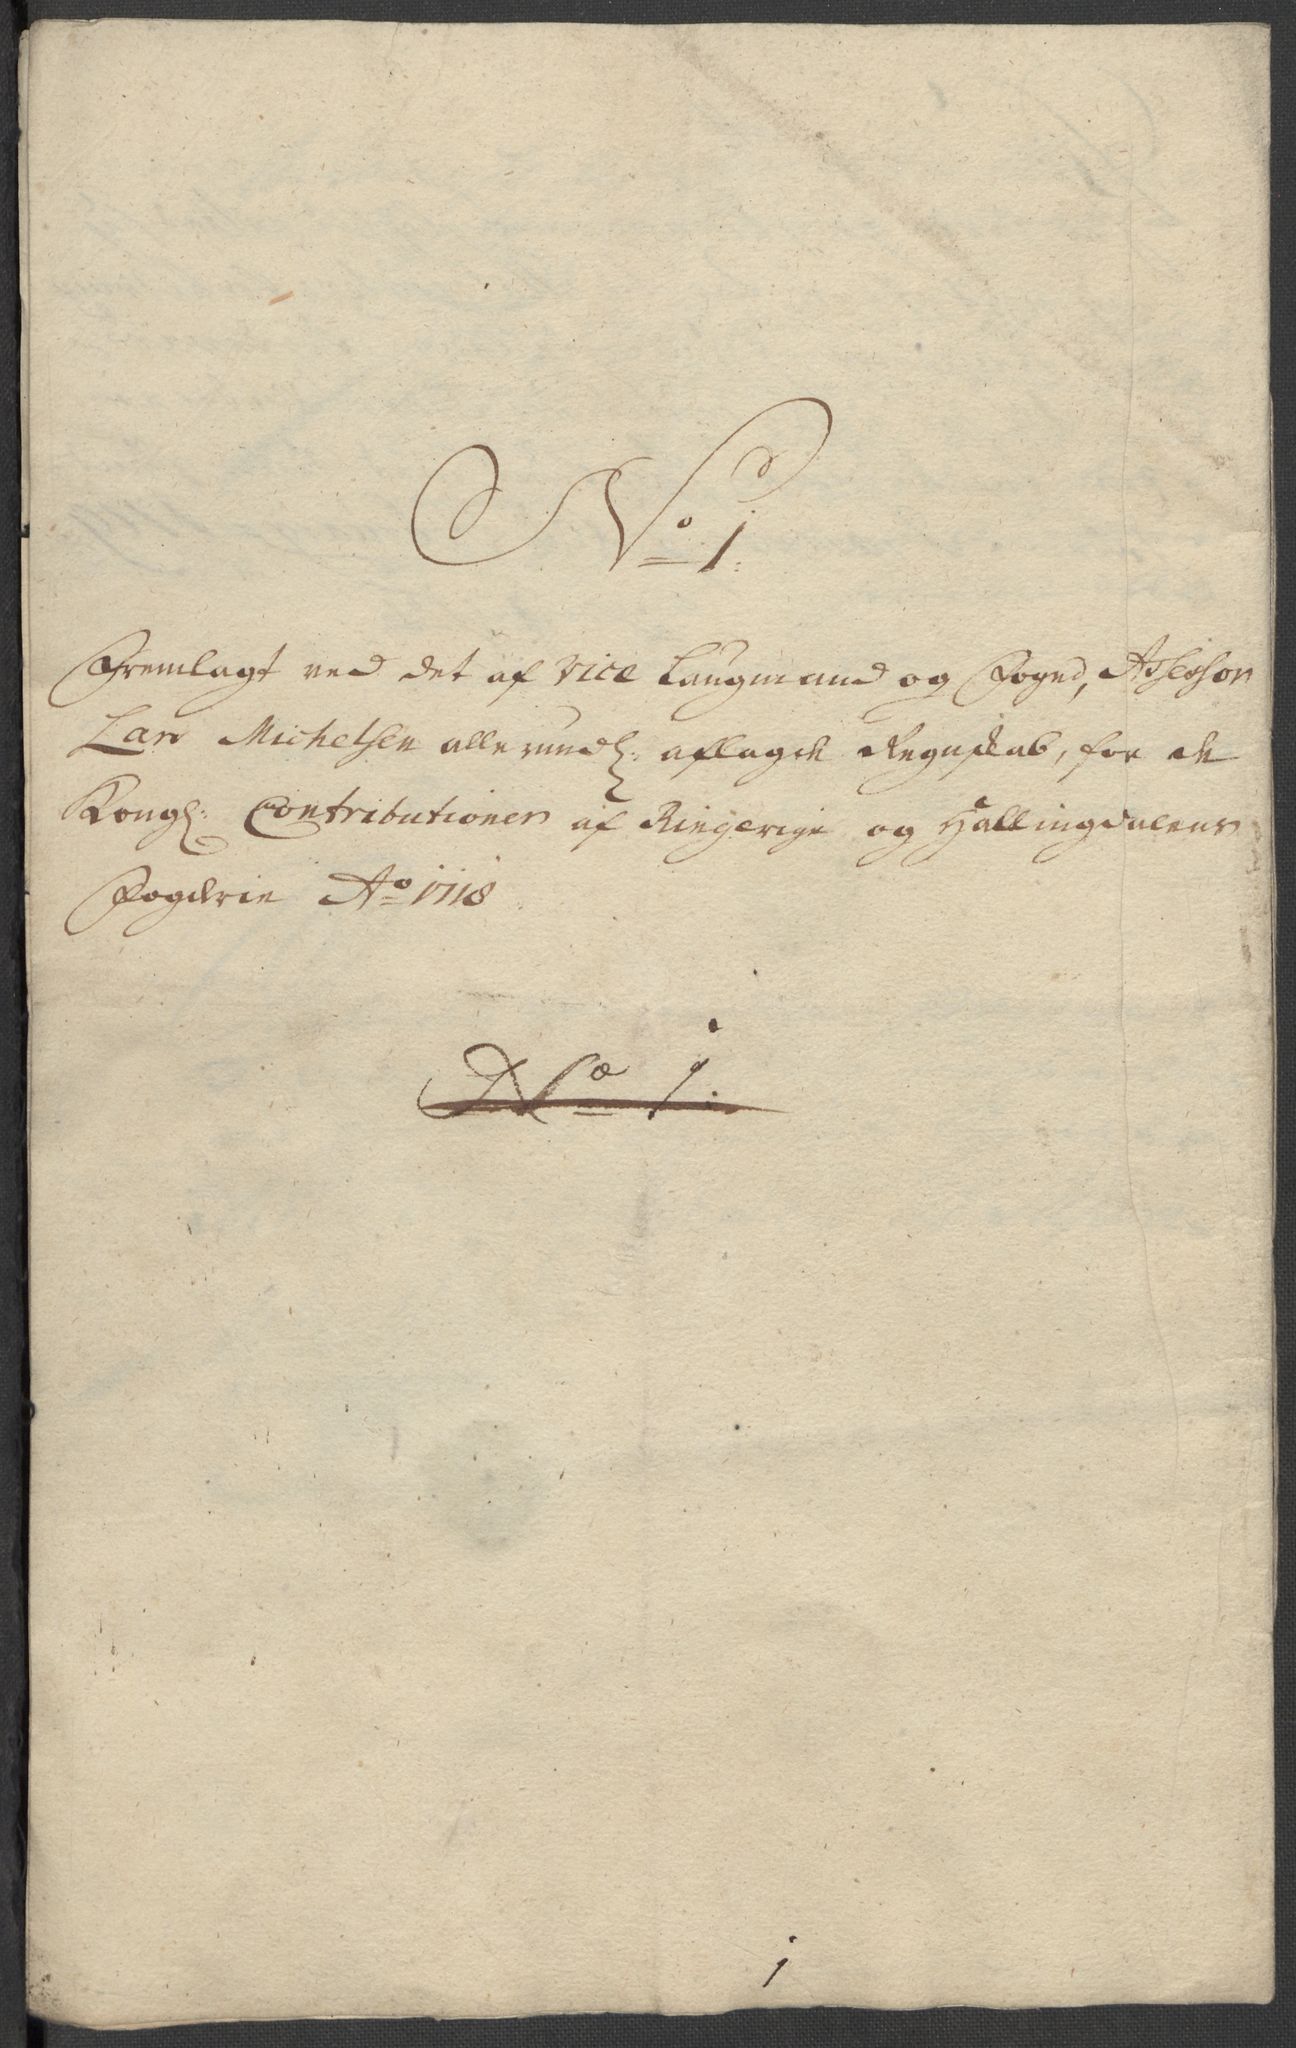 No 1.
Fremlagt ved det af Vice Laugmand og Foged, Assessor
Lars Michelsen allerundl: aflagde Regnskab, for de
Kongl: Contributioner af Ringerige og Hallingdalens
Fogderie Ao 1718
No 1.
1